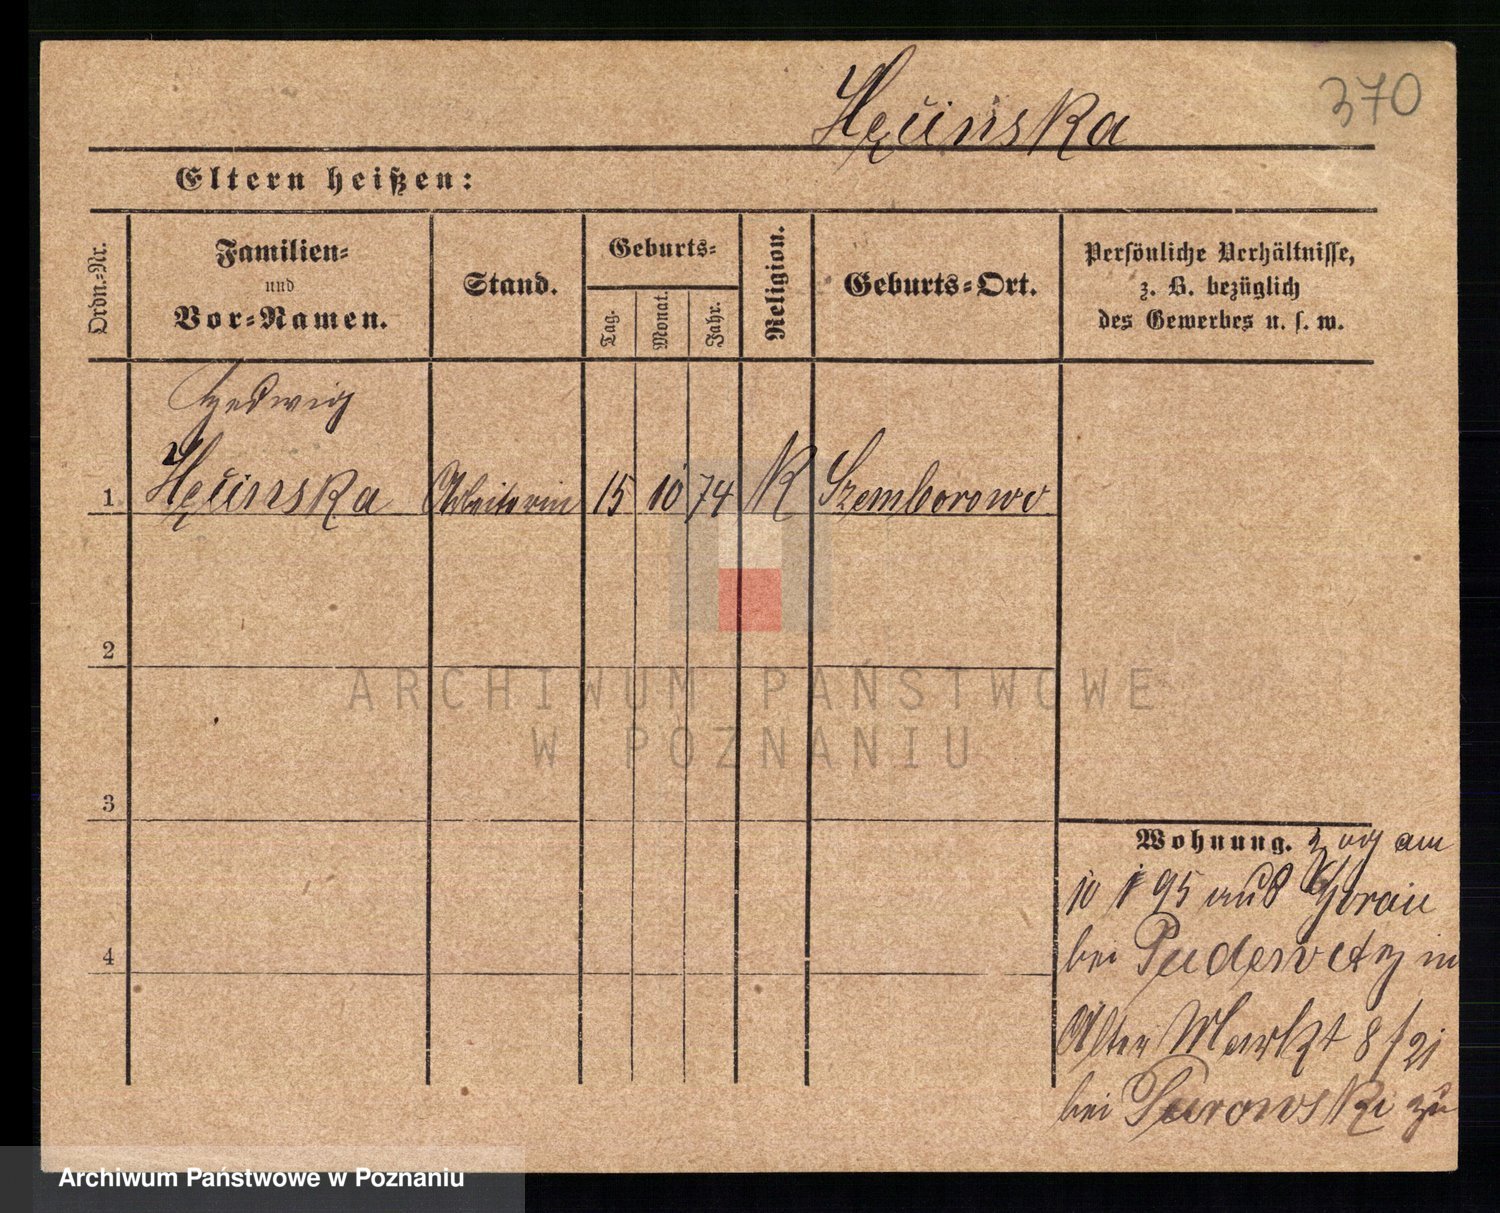 370
Eltern heißen:
Ordn.-Nr.
Familien-
und
Vor-Namen.
Stand.
Geburts-
Tag.
Monat.
Jahr.
Religion.
Geburts-Ort.
Persönliche Verhältnisse,
z. B. bezüglich
des Gewerbes u. s. w.
Hedwig
1 Arbeiterin 15 10 74 K Szemborowo
2
3
4
Wohnung. zog am
10 95 aus
bei Pudewitz in
Alter Markt 8/21
bei zu
ARCHIWUM PAŃSTWOWE
W POZNANIU
Archiwum Państwowe w Poznaniu